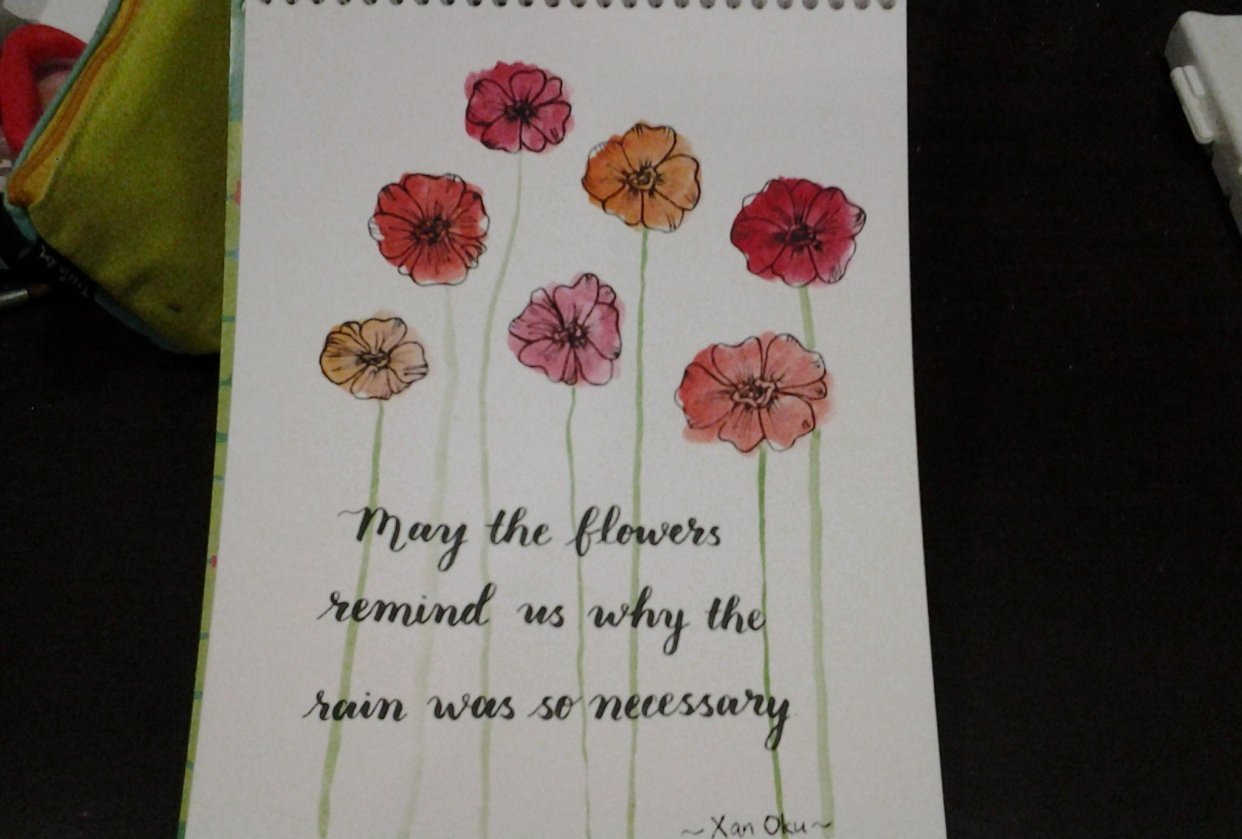 May the flowers
remind us why the
rain was so necessary
~ Xan Oku ~